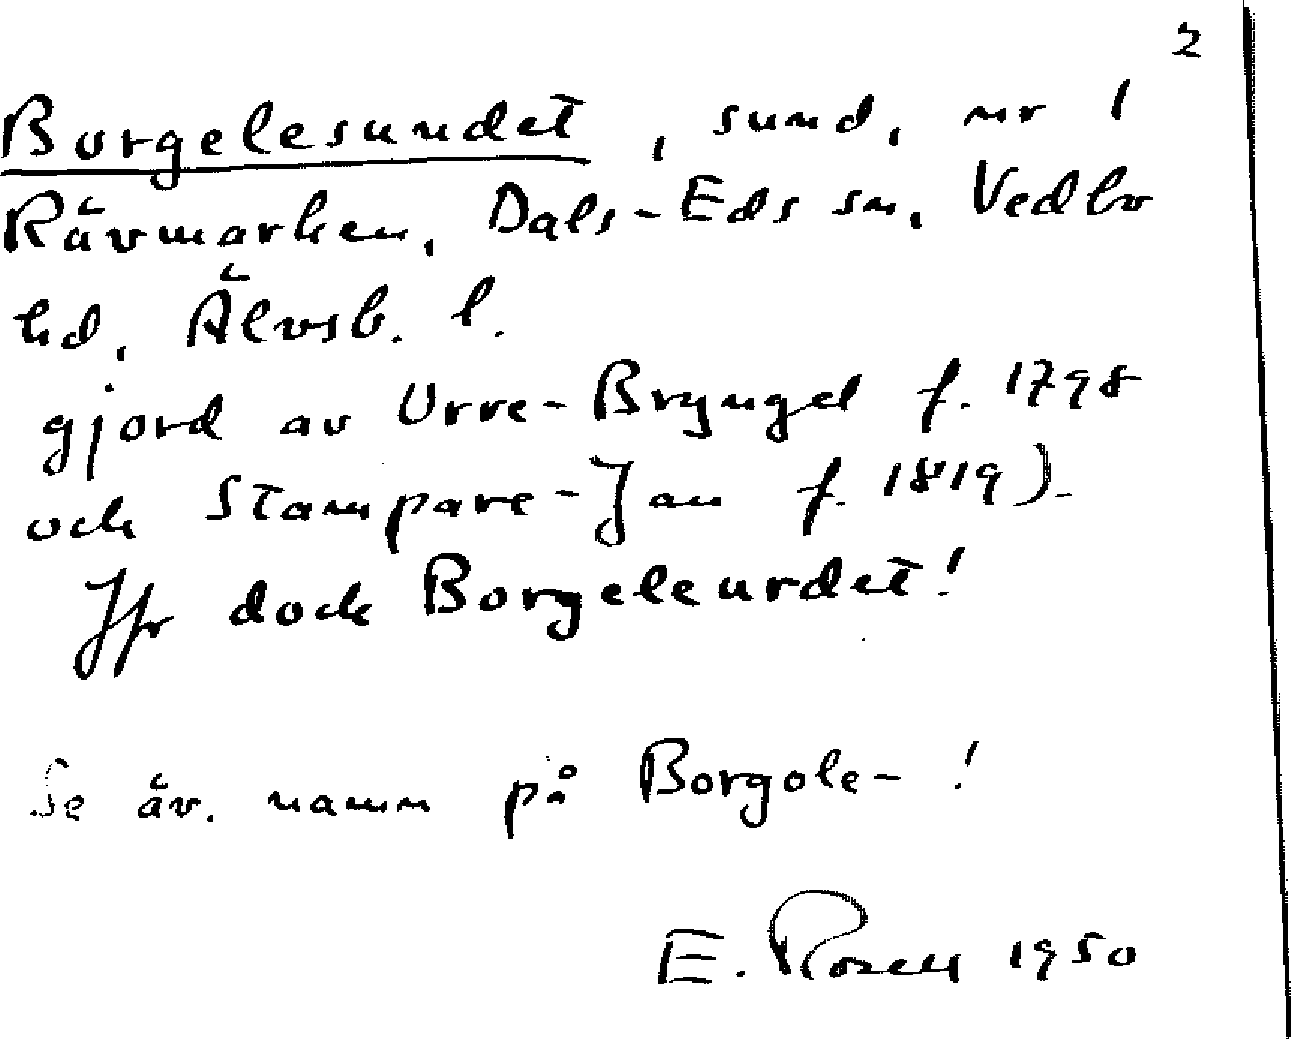 2
Borgelesundet, sund, nr 1
Rävmarken, Dals-Eds sn, Vedbo
hd, Älvsb. l.
gjord av Urve-Bryngel f. 1798
och Stampare-Jan f. 1819).
Jfr dock Borgeleurdet!
Se äv. namn på Borgole- !
E. Rosell 1950